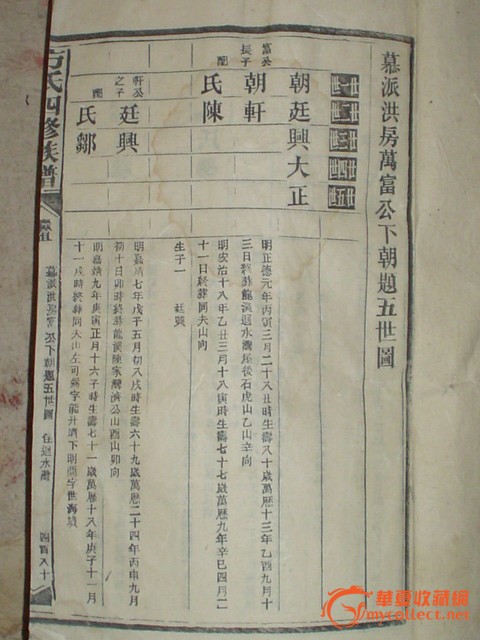 慕派洪房萬富公下朝題五世圖
廿一世
廿二世
廿三世
廿四世
廿五世
朝廷興大正
富公長子
朝軒
配
氏陳
明正德元年丙寅三月二十八丑時生壽八十歲萬歷十三年乙酉九月十
三日終葬龍溪迴水灣屋後石虎山乙山辛向
明安治十八年乙丑三月十八寅時生壽七十七歲萬歷九年辛巳四月二
十一日終葬同夫山向
生子一 廷興
軒公之子
廷興
配
氏鄒
明嘉靖七年戊子五月初八戌時生壽六十九歲萬歷二十四年丙申九月
初十日卯時終葬龍溪陳家灣濟公山酉山卯向
明嘉靖九年庚寅正月十六子時生壽七十一歲萬歷十八年庚子十一月
十一戌時終葬同夫山左
方氏四修族譜
慕派洪房萬富公下朝題五世圖
四百八十
華夏收藏網
mycollect.net